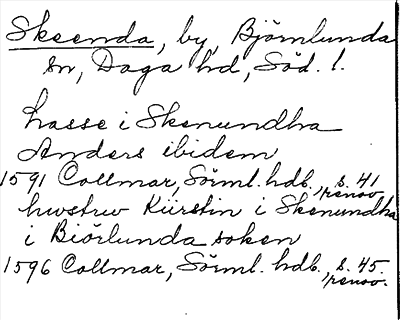 Skeenda, by, Björnlunda
sn, Daga hd, Söd. l.
hasse i Skenundha
Anders ibidem
1591 Collmar, Sörml. hdb., s. 41
renov.
hwstrv Kiirstin i Skenundha
i Biörlunda soken
1596 Collmar, Sörml. hdb., s. 45.
renov.